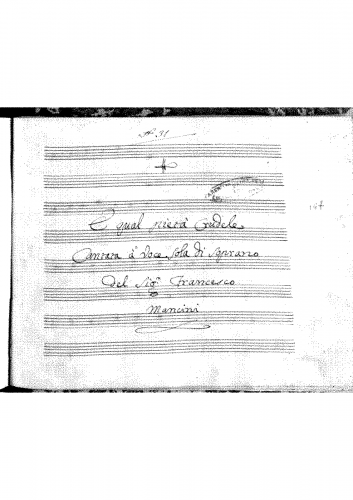 E qual pietà Crudele
Cantata à Voce Sola di Soprano
Del Sigr. Francesco
Mancini